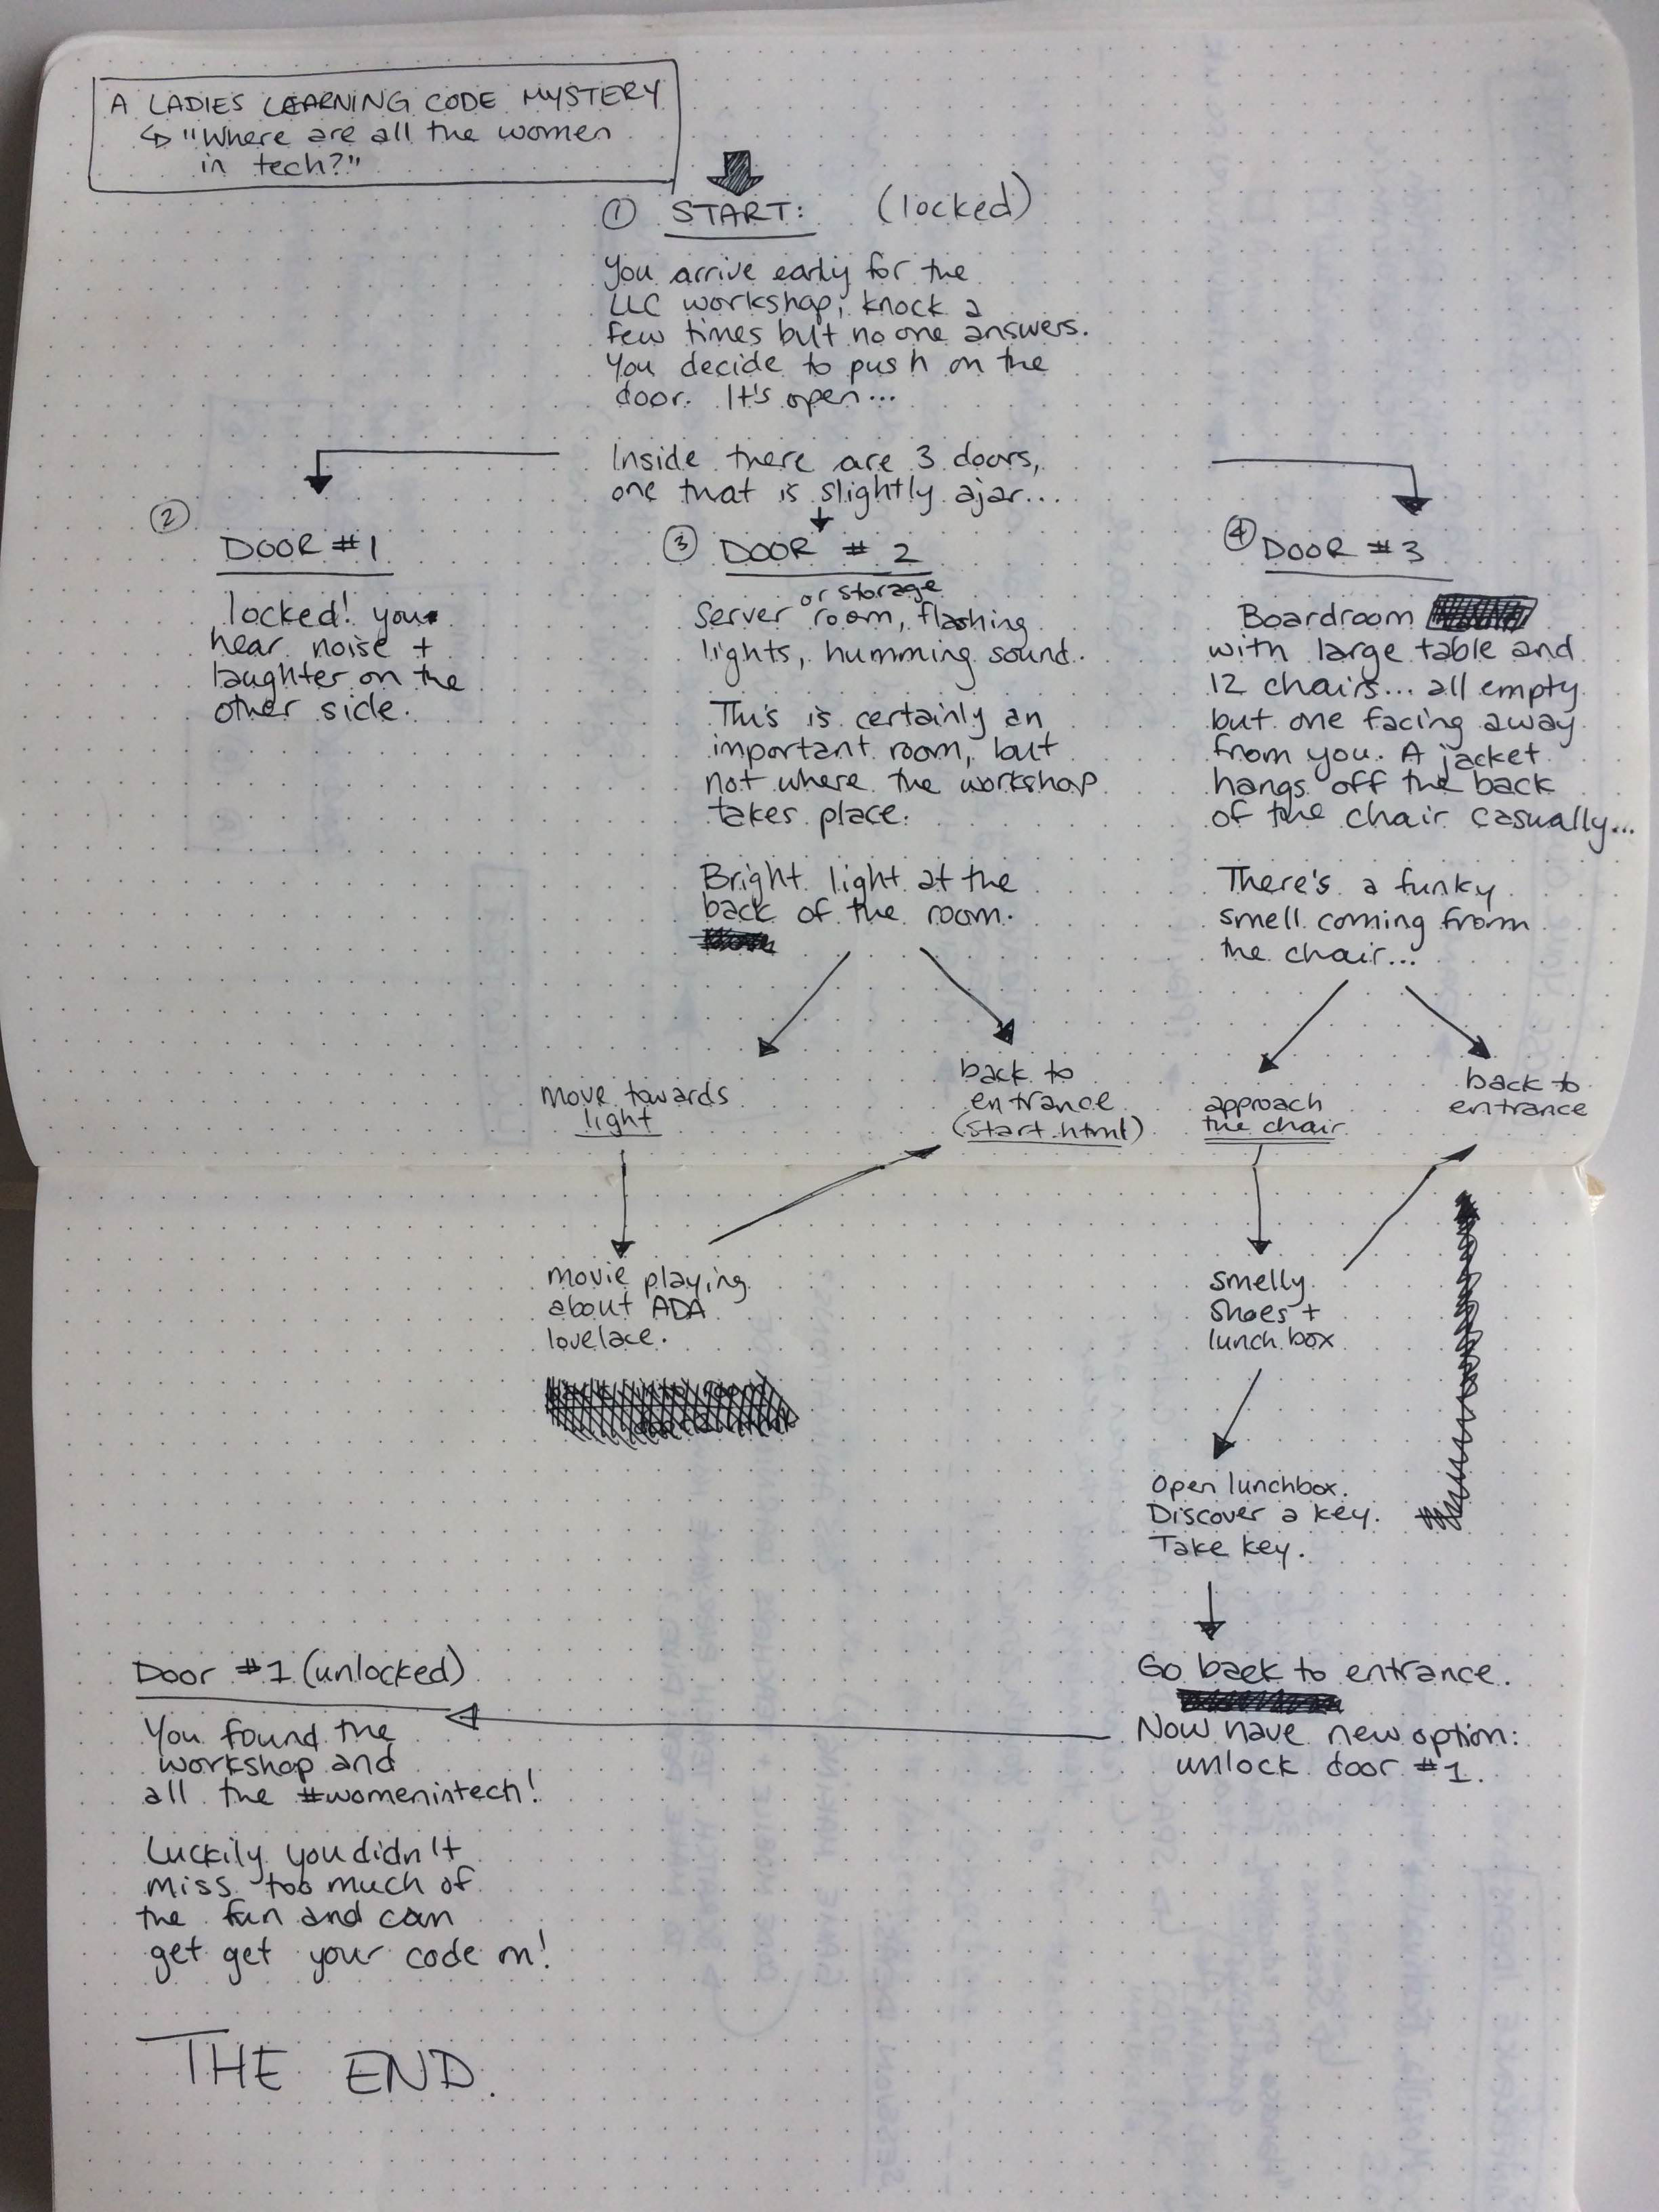 A LADIES LEARNING CODE MYSTERY
↳ "Where are all the women
in tech?"
① START: (locked)
You arrive early for the
LLC workshop; knock a
few times but no one answers.
You decide to push on the
door. It's open...
Inside there are 3 doors,
one that is slightly ajar...
②
DOOR #1
locked! you
hear noise +
laughter on the
other side.
③ DOOR # 2
or storage
Server room, flashing
lights, humming sound.
This is certainly an
important room, but
not where the workshop
takes place.
Bright light at the
back of the room.
move towards
light
back to
entrance
(start.html)
movie playing
about ADA
lovelace.
④ DOOR #3
Boardroom
with large table and
12 chairs... all empty
but one facing away
from you. A jacket
hangs off the back
of the chair casually...
There's a funky
smell coming from
the chair...
approach
the chair
back to
entrance
smelly
shoes +
lunch box
Open lunchbox.
Discover a key.
Take key.
Go back to entrance.
Now have new option:
unlock door #1.
Door #1 (unlocked)
You found the
workshop and
all the #womenintech!
Luckily you didn't
miss too much of
the fun and can
get get your code on!
THE END.